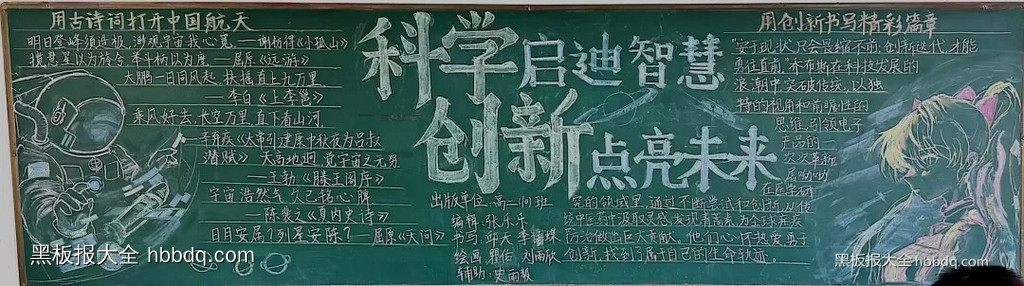 用古诗词打开中国航天
明日登峰须造极,渺观宇宙我心宽。——谢枋得《小孤山》
揽彗星以为旍兮,举斗柄以为麾——屈原《远游》
大鹏一日同风起 扶摇直上九万里
——李白《上李邕》
乘风好去,长空万里,直下看山河
——辛弃疾《太常引·建康中秋夜为吕叔
潜赋》 天高地迥 觉宇宙之无穷
——王勃《滕王阁序》
宇宙浩然气 久已
日月安属?列星安陈?——屈原《天问》
科学启迪智慧
创新点亮未来
出版单位:高二(10)班
编辑:张乐乐
书写:
绘画: 刘雨欣
辅助:
用创新书写精彩篇章
"安于现状,只会畏缩不前,创新迭代,才能
勇往直前"乔布斯在科技发展的
浪潮中突破传统,以独
特的视角和前瞻性的
思维,引领电子
产品的一
次次革新
屠呦呦
在医学研
究的领域里,通过不断尝试和创新,从传
统中医药中汲取灵感,发现青蒿素,为全球在疾
防治做出巨大贡献。他们心怀热爱,勇于
创新,找到了属于自己的生命轨迹。
黑板报大全 hbbdq.com
黑板报大全 hbbdq.com